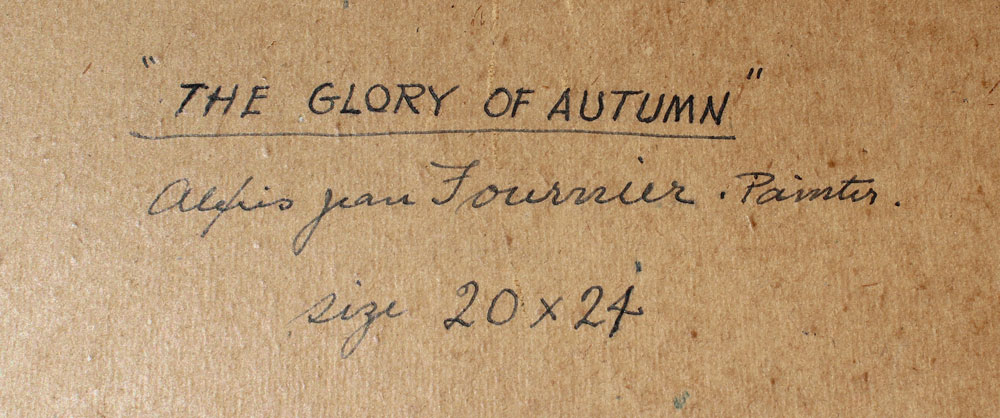 "THE GLORY OF AUTUMN"
Alexis Jean Fournier . Painter.
size 20 x 24